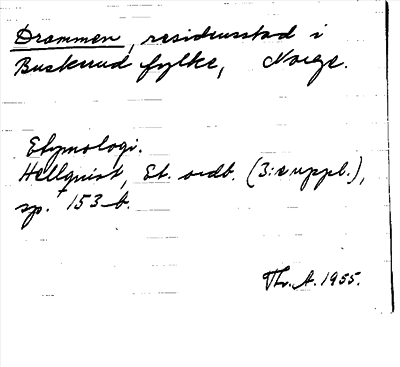 Drammen, residensstad i
Buskerud fylke, Norge.
Etymologi.
Hellquist, Et. ordb. (3:e uppl.),
sp. 153 b.
Thr. A. 1955.